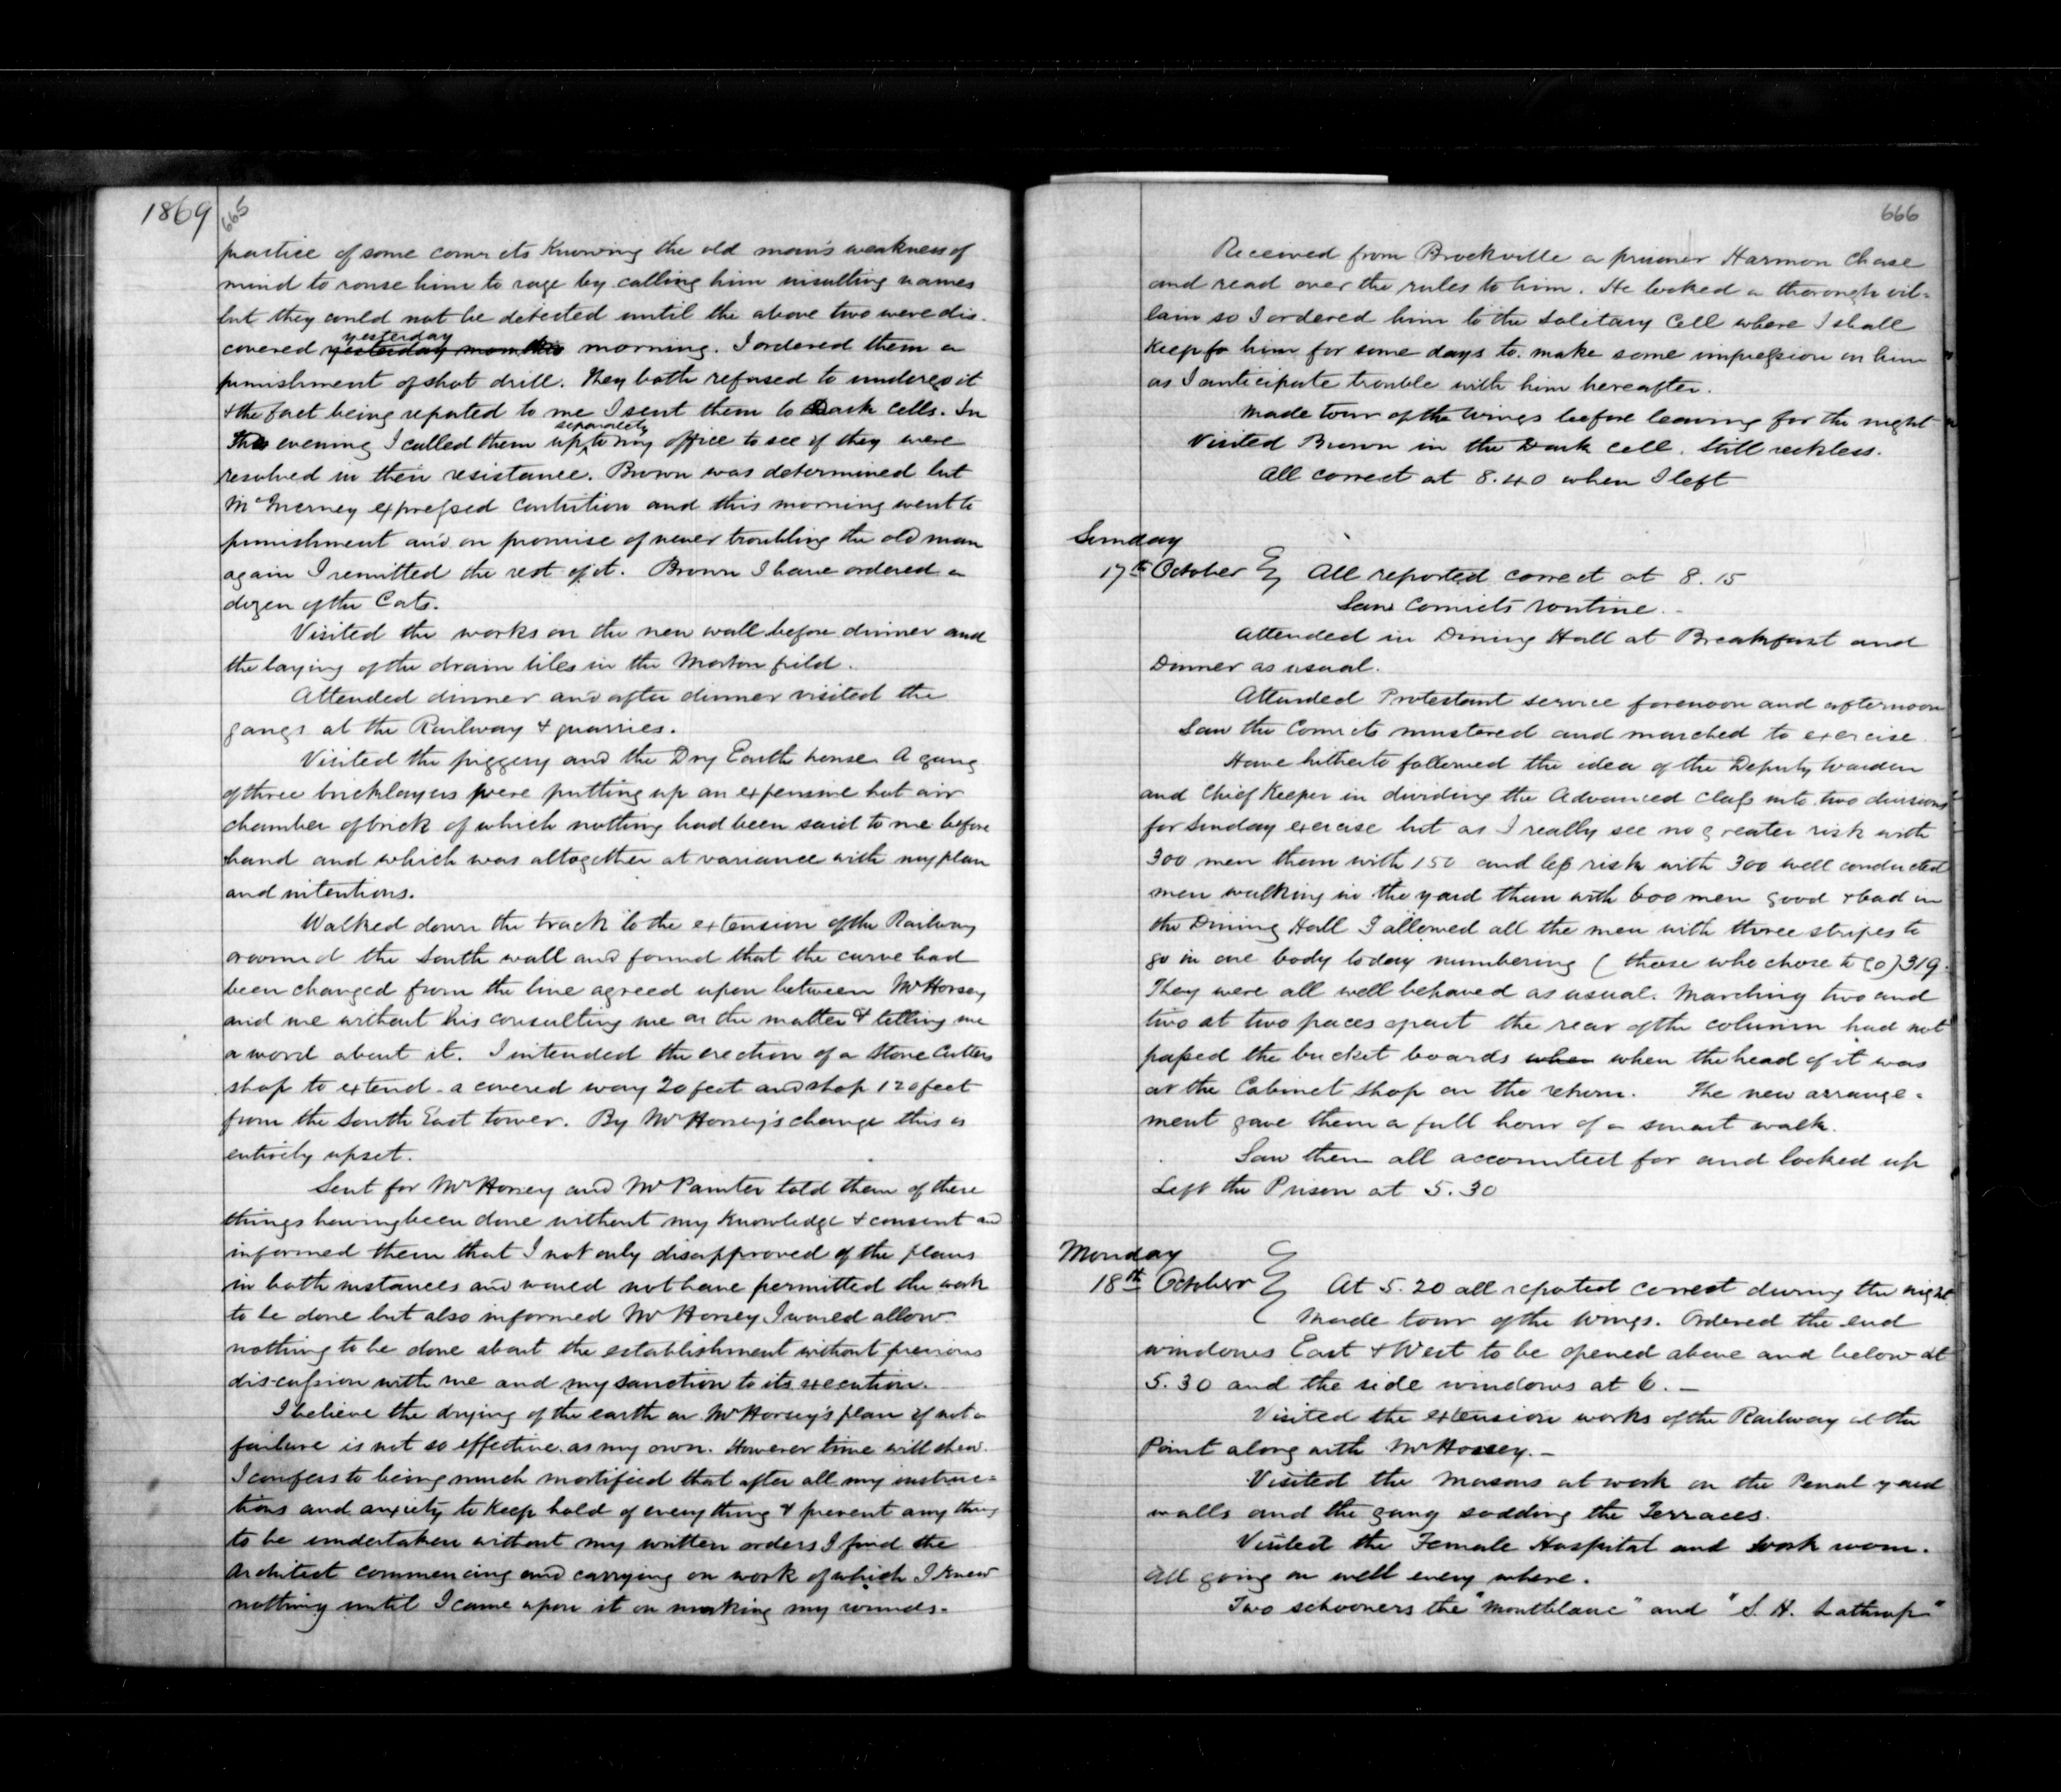 1869
665
practice of some convicts knowing the old man's weakness of
mind to rouse him to rage by calling him insulting names
but they could not be detected until the above two were dis-
yesterday
covered yesterday morning. I ordered them a
punishment of shot drill. They both refused to undergo it
& the fact being reported to me I sent them to Dark cells. In
separately
the evening I called them up to my office to see if they were
resolved in their resistance. Brown was determined but
McInerney expressed contrition and this morning went to
punishment and on promise of never troubling the old man
again I remitted the rest of it. Brown I have ordered a
dozen of the Cats.
Visited the works on the new wall before dinner and
the laying of the drain tiles in the Morton field.
Attended dinner and after dinner visited the
gangs at the Railway & quarries.
Visited the piggery and the Dry Earth house. A gang
of three bricklayers were putting up an expensive hot air
chamber of brick of which nothing had been said to me before
hand and which was altogether at variance with my plan
and intentions.
Walked down the track to the extension of the Railway
around the South wall and found that the curve had
been changed from the line agreed upon between Mr Horsey
and me without his consulting me on the matter & telling me
a word about it. I intended the erection of a Stone Cutters
shop to extend - a covered way 20 feet and shop 120 feet
from the South East tower. By Mr Horsey's change this is
entirely upset.
Sent for Mr Horsey and Mr Painter told them of these
things having been done without my knowledge & consent and
informed them that I not only disapproved of the plans
in both instances and would not have permitted the work
to be done but also informed Mr Horsey I would allow
nothing to be done about the establishment without previous
discussion with me and my sanction to its execution.
I believe the drying of the earth on Mr Horsey's plan if not a
failure is not so effective as my own. However time will shew.
I confess to being much mortified that after all my instruc-
tions and anxiety to keep hold of everything & prevent any thing
to be undertaken without my written orders I find the
Architect commencing and carrying on work of which I knew
nothing until I came upon it on making my rounds.
666
Received from Brockville a prisoner Harmon Chase
and read over the rules to him. He looked a thorough vil-
lain so I ordered him to the Solitary Cell where I shall
keep him for some days to make some impression on him
as I anticipate trouble with him hereafter.
Made tour of the Wings before leaving for the night
Visited Brown in the Dark cell. Still reckless.
All correct at 8.40 when I left
Sunday
17th October } All reported correct at 8.15
Saw Convicts routine.
Attended in Dining Hall at Breakfast and
Dinner as usual.
Attended Protestant service forenoon and afternoon
Saw the Convicts mustered and marched to exercise.
Have hitherto followed the idea of the Deputy Warden
and Chief Keeper in dividing the Advanced Class into two divisions
for Sunday exercise but as I really see no greater risk with
300 men than with 150 and less risk with 300 well conducted
men walking in the yard than with 600 men good & bad in
the Dining Hall I allowed all the men with three stripes to
go in one body today numbering (those who chose to go) 319.
They were all well behaved as usual. Marching two and
two at two paces apart the rear of the column had not
passed the bucket boards when when the head of it was
at the Cabinet Shop on the return. The new arrange-
ment gave them a full hour of a smart walk.
Saw them all accounted for and locked up
Left the Prison at 5.30
Monday
18th October } At 5.20 all reported correct during the night
Made tour of the Wings. Ordered the end
windows East & West to be opened above and below at
5.30 and the side windows at 6. -
Visited the extension works of the Railway at the
Point along with Mr Horsey. -
Visited the Masons at work on the Penal yard
walls and the gang sodding the Terraces.
Visited the Female Hospital and work room.
All going on well every where.
Two schooners the "Montblanc" and "S. H. Lathrop"